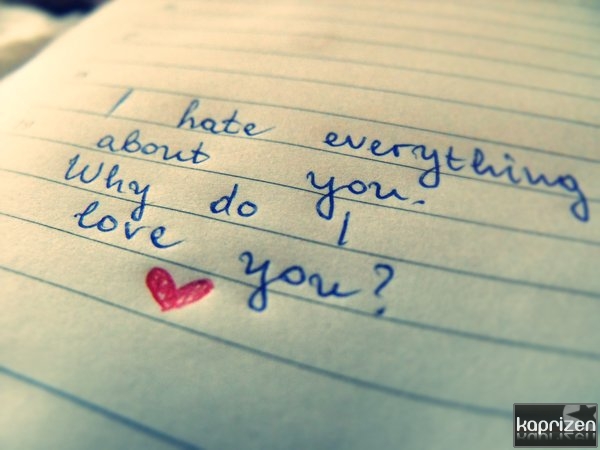 I hate everything
about you.
Why do I
love you?
kaprizen